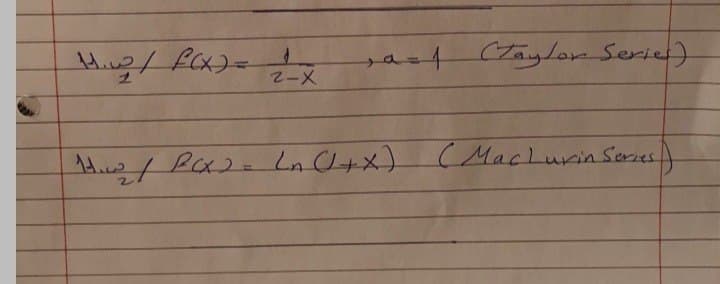 H.w1/ f(x) = 1/(2-x) , a = 1 (Taylor Series)
H.w2/ f(x) = Ln(1+x) (Maclurin Series)